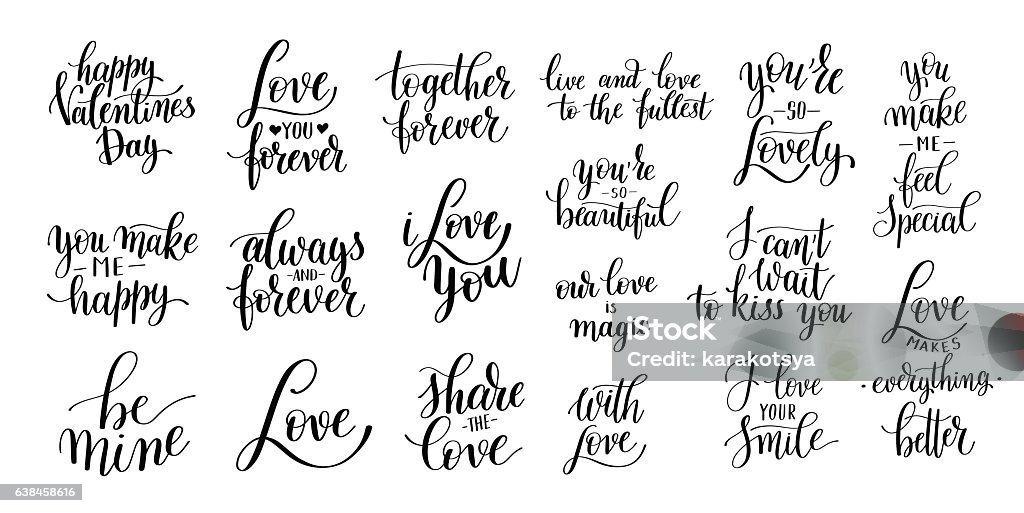 happy
Valentines
Day
Love
YOU
forever
together
forever
live and love
to the fullest
you're
SO
Lovely
you
make
ME
feel
Special
you make
ME
happy
always
AND
forever
i Love
you
you're
SO
beautiful
I can't
wait
to kiss you
our love
is
magic
Love
MAKES
everything
better
be
mine
Love
share
THE
Love
with
Love
I love
YOUR
Smile
iStock
Credit: karakotsya
638458616